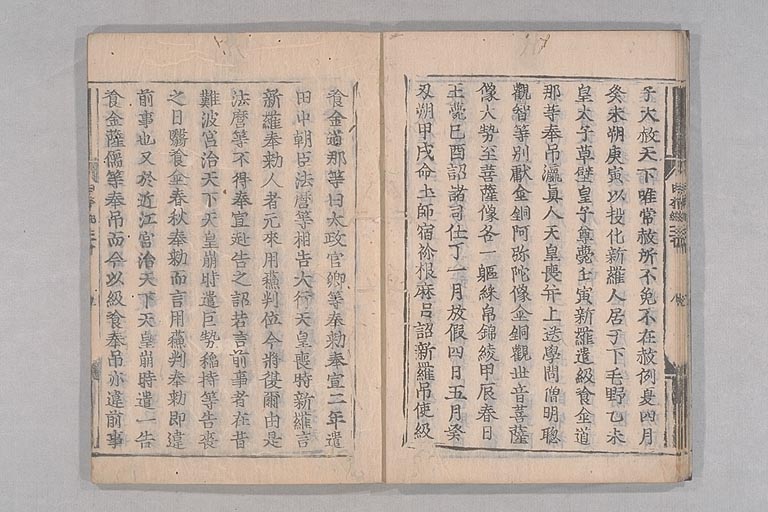 子大赦天下唯常赦所不免不在赦例夏四月
癸未朔庚寅以投化新羅人居于下毛野乙未
皇太子草壁皇子尊薨壬寅新羅遣級飡金道
那等奉吊瀛真人天皇喪并上送學問僧明聡
觀智等別獻金銅阿弥陀像金銅觀世音菩薩
像大勢至菩薩像各一軀綵帛錦綾甲辰春日
王薨己酉詔諸司仕丁一月放假四日五月癸
丑朔甲戌命土師宿祢根麻呂詔新羅吊使級
飡金道那等曰太政官卿等奉勅奉宣二年遣
田中朝臣法麿等相告大行天皇喪時新羅言
新羅奉勅人者元來用蘓判位今將復爾由是
法麿等不得奉宣赴告之詔若言前事者在昔
難波宮治天下天皇崩時遣巨勢稲持等告喪
之日翳飡金春秋奉勅而言用蘓判奉勅即違
前事也又於近江宮治天下天皇崩時遣一告
飡金薩儒等奉吊而今以級飡奉吊亦違前事